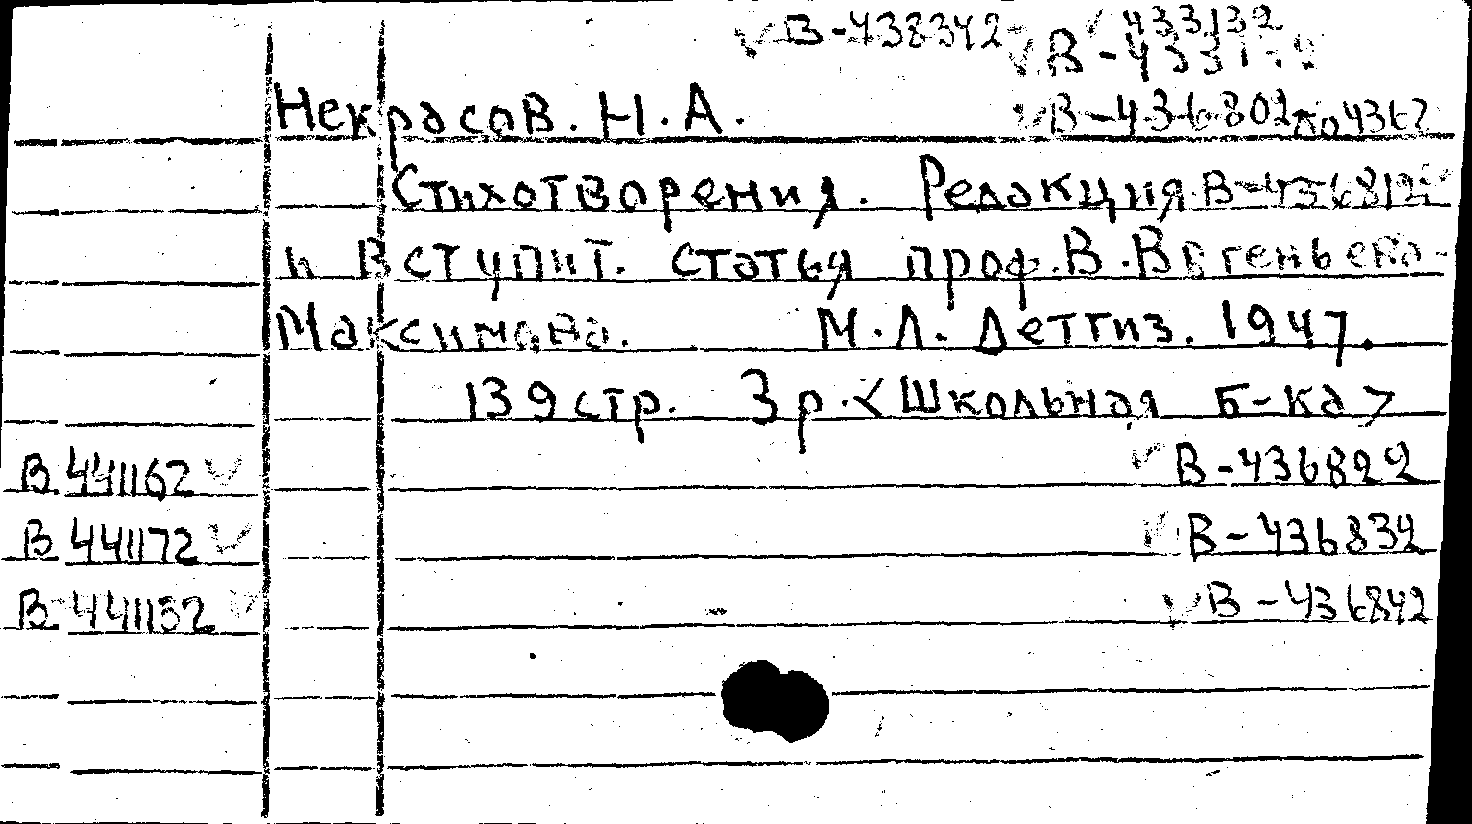 В-438342 433132
В-4331
Некрасов. Н.А. В-436802 по 4367
Стихотворения. Редакция В-436812
и вступит. статья проф. В. Евгеньева-
Максимова. М.Л. Детгиз. 1947.
139 стр. 3 р. <Школьная б-ка>
В 441162 В-436822
В 441172 В-436832
В-441132 В-436842